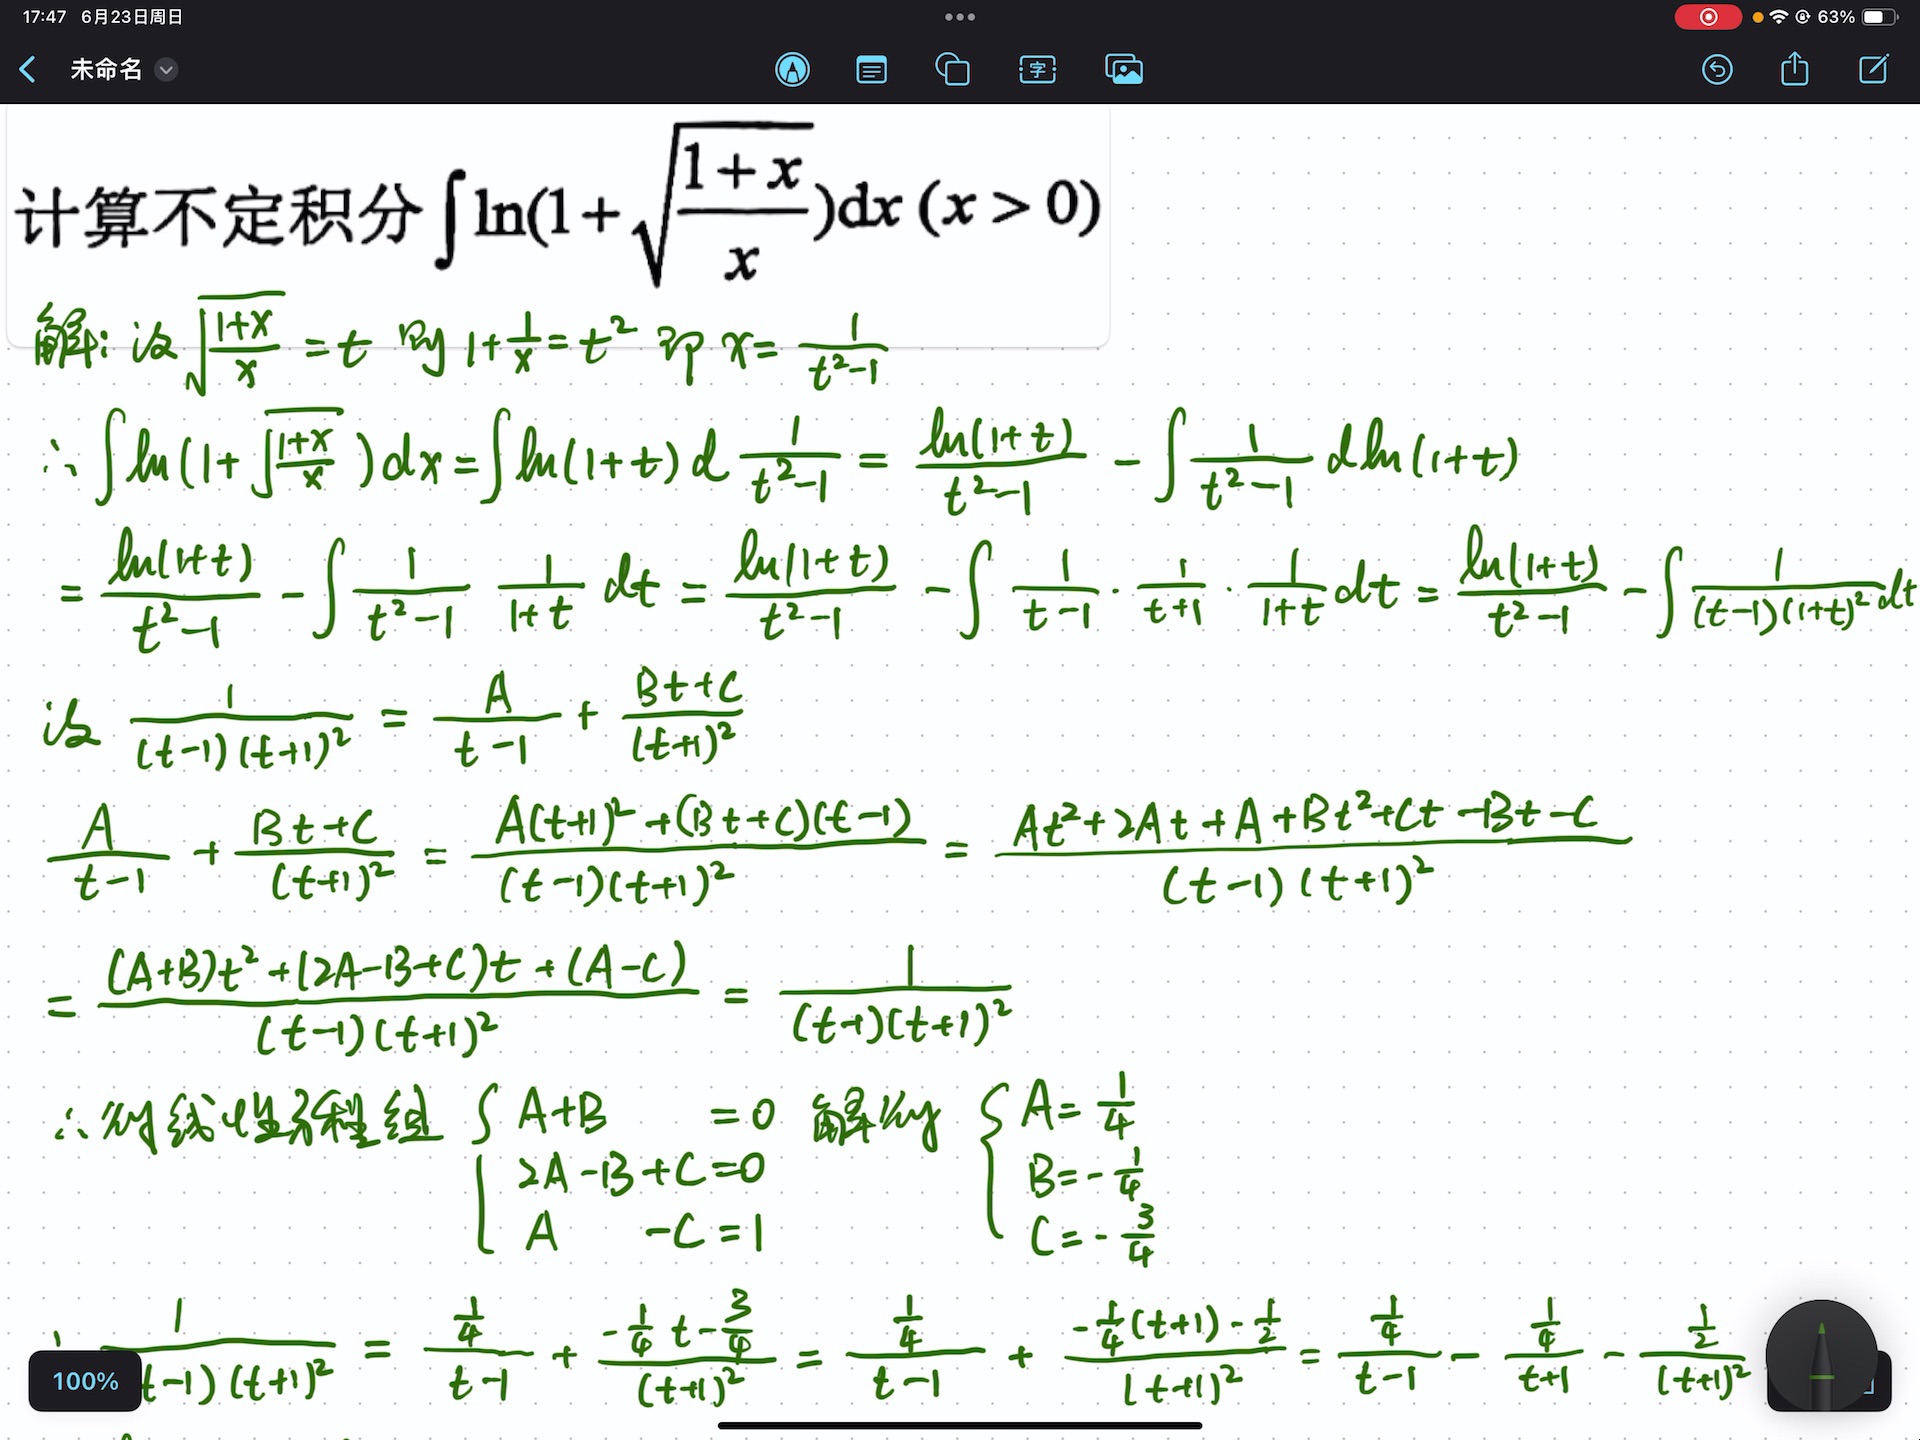 17:47 6月23日周日
63%
未命名
计算不定积分∫ln(1+√((1+x)/x))dx (x>0)
解: 设 √((1+x)/x) = t 则 1+1/x = t² 即 x = 1/(t²-1)
∴ ∫ln(1+√((1+x)/x))dx = ∫ln(1+t) d 1/(t²-1) = ln(1+t)/(t²-1) - ∫ 1/(t²-1) d ln(1+t)
= ln(1+t)/(t²-1) - ∫ 1/(t²-1) 1/(1+t) dt = ln(1+t)/(t²-1) - ∫ 1/(t-1) · 1/(t+1) · 1/(1+t) dt = ln(1+t)/(t²-1) - ∫ 1/((t-1)(1+t)²) dt
设 1/((t-1)(t+1)²) = A/(t-1) + (Bt+C)/(t+1)²
A/(t-1) + (Bt+C)/(t+1)² = (A(t+1)²+(Bt+C)(t-1))/((t-1)(t+1)²) = (At²+2At+A+Bt²+Ct-Bt-C)/((t-1)(t+1)²)
= ((A+B)t²+(2A-B+C)t+(A-C))/((t-1)(t+1)²) = 1/((t-1)(t+1)²)
∴ 得线性方程组 { A+B =0 解得 { A = 1/4
2A-B+C=0 B = -1/4
A -C=1 C = -3/4
1/((t-1)(t+1)²) = (1/4)/(t-1) + (-1/4 t - 3/4)/(t+1)² = (1/4)/(t-1) + (-1/4(t+1) - 1/2)/(t+1)² = (1/4)/(t-1) - (1/4)/(t+1) - (1/2)/(t+1)²
100%